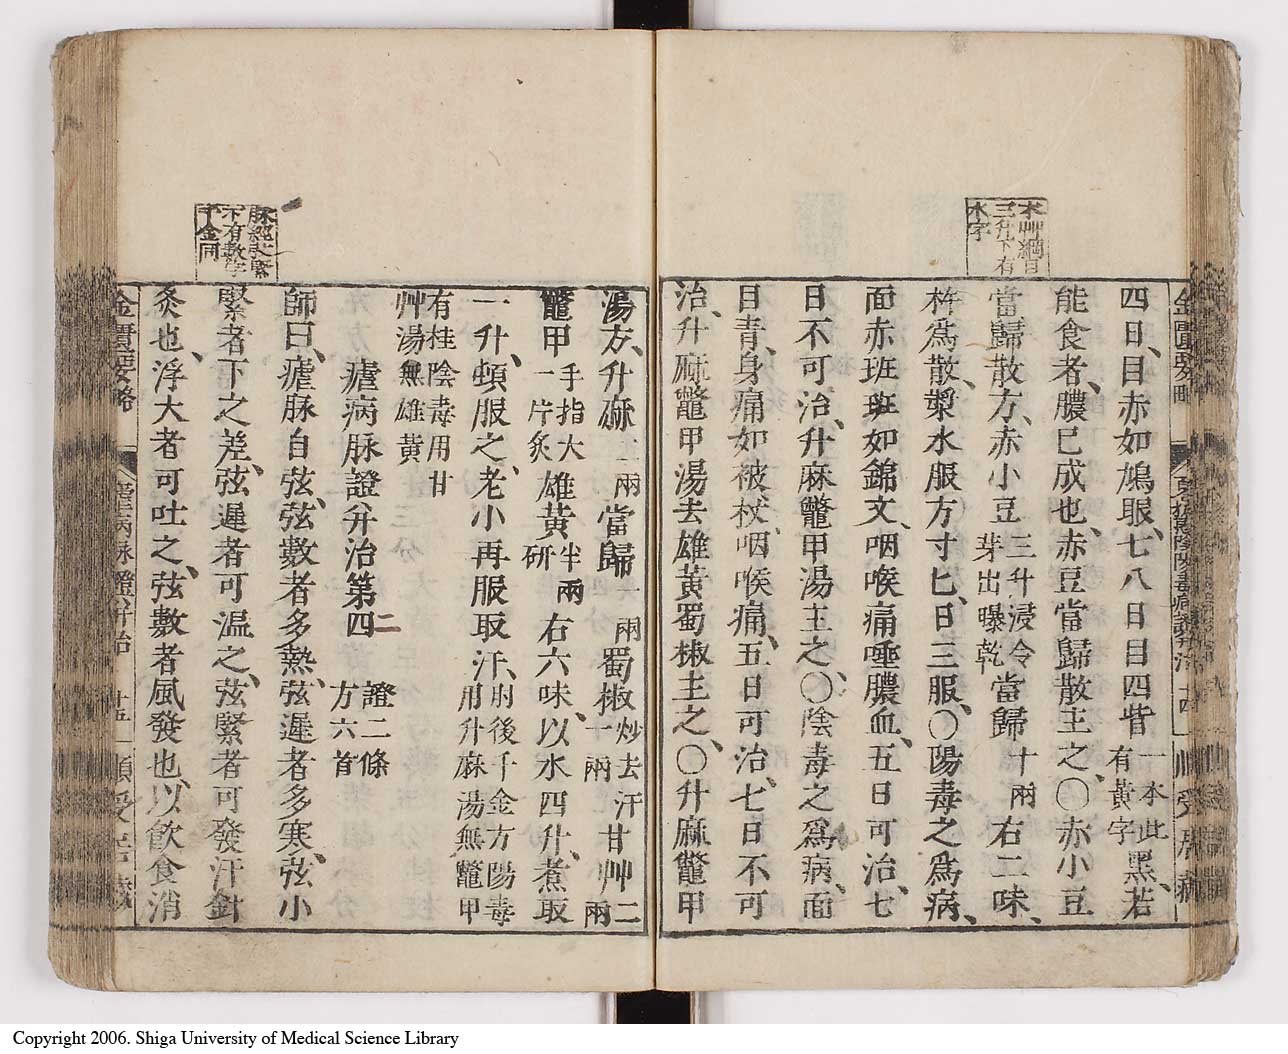 本艸綱目
三升下有
水字
四日、目赤如鳩眼、七八日目四眥一本此有黃字黑、若
能食者、膿已成也、赤豆當歸散主之、〇赤小豆
當歸散方、赤小豆三升浸令芽出曝乾當歸十兩右二味、
杵爲散、漿水服方寸匕、日三服、〇陽毒之爲病、
面赤班班如錦文、咽喉痛唾膿血、五日可治、七
日不可治、升麻鼈甲湯主之、〇陰毒之爲病、面
目青、身痛如被杖、咽喉痛、五日可治、七日不可
治、升麻鼈甲湯去雄黃蜀椒主之、〇升麻鼈甲
脉經之緊
下有數字
千金同
湯方、升麻二兩當歸一兩蜀椒炒去汗一兩甘艸二兩
鼈甲手指大一片炙雄黃半兩研右六味、以水四升、煮取
一升、頓服之、老小再服取汗、肘後千金方陽毒用升麻湯無鼈甲
有桂陰毒用甘艸湯無雄黃
瘧病脉證幷治第四 證二條方六首
二
師曰、瘧脉自弦、弦數者多熱、弦遲者多寒、弦小
緊者下之差、弦遲者可温之、弦緊者可發汗針
灸也、浮大者可吐之、弦數者風發也、以飮食消
金匱要略 瘧病脉證幷治 十五